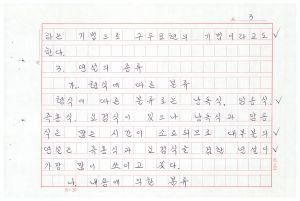 3
하는 기법으로 구두표현의 기법이라고도
한다.
3. 연설의 종류
가. 형식에 따른 분류
형식에 따른 분류로는 낭독식, 암송식,
즉흥식, 요점식이 있으나 낭독식과 암송
식은 많은 시간이 소요되므로 대부분의
연설은 즉흥식과 요점식을 겸한 연설이
가장 많이 쓰이고 있다.
나. 내용에 의한 분류